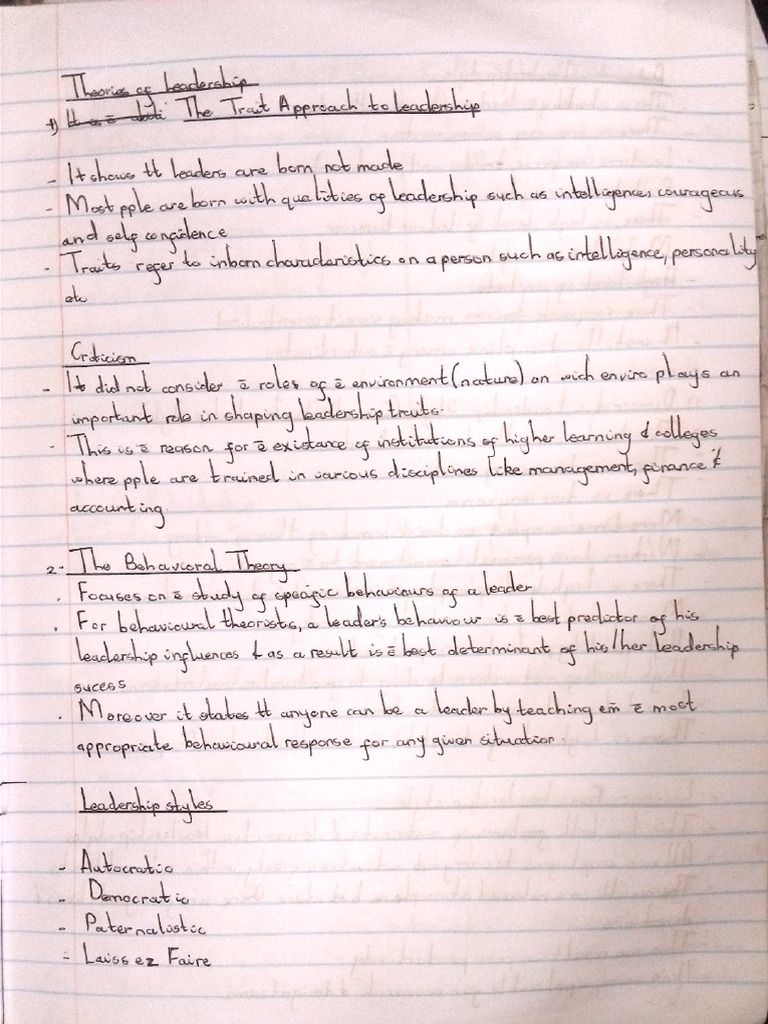 Theories of Leadership
1) The Trait Approach to Leadership
- It shows tt leaders are born not made
- Most pple are born with qualities of leadership such as intelligence, courageous
and self confidence
- Traits refer to inborn characteristics on a person such as intelligence, personality
etc
Criticism
- It did not consider ē roles of ē environment (nature) on wich enviro plays an
important role in shaping leadership traits.
- This is ē reason for ē existance of institutions of higher learning & colleges
where pple are trained in various disciplines like management, finance &
accounting.
2- The Behavioral Theory
. Focuses on ē study of specific behaviours of a leader
. For behavioural theorists, a leader's behaviour is ē best predictor of his
leadership influences & as a result is ē best determinant of his/her leadership
sucess
. Moreover it states tt anyone can be a leader by teaching em ē most
appropriate behavioural response for any given situation.
Leadership styles
- Autocratic
- Democratic
- Paternalistic
- Laissez Faire